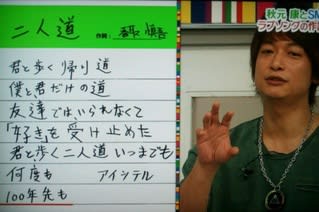 二人道 作詞：香取 慎吾
秋元 康とSM
ラブソングの作
君と歩く帰り道
僕と君だけの道
友達では、いられなくて
「好き」を受け止めた
君と歩く二人道いつまでも
何度も アイシテル
100年先も